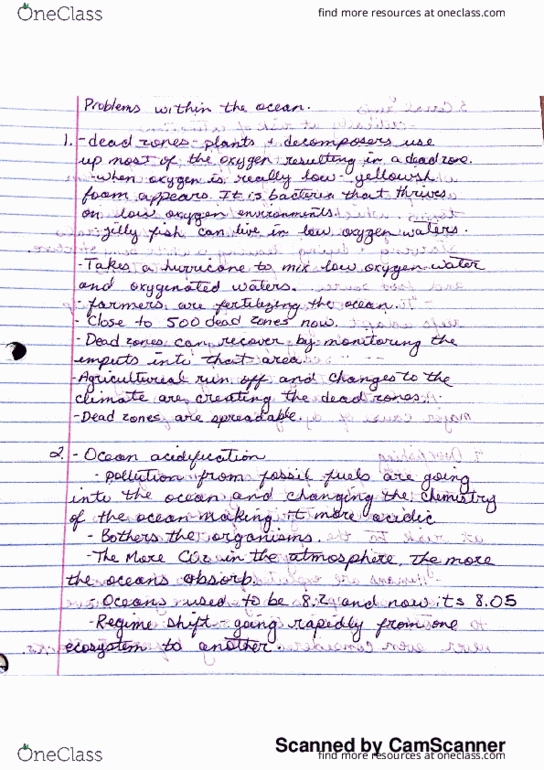 OneClass
find more resources at oneclass.com
Problems within the ocean.
1. - dead zones - plants + decomposers use
up most of the oxygen resulting in a dead zone.
- when oxygen is really low - yellowsh
foam appears. It is bacteria that thrives
on low oxygen environments.
- jilly fish can live in low oxygen waters.
- Takes a hurricane to mix low oxygen water
and oxygenated waters.
- farmers are fertilizing the ocean.
- Close to 500 dead zones now.
- Dead zones can recover by monitoring the
imputs into that area.
- Agricultureal run off and changes to the
climate are creating the dead zones.
- Dead zones are spreadable.
2. - Ocean acidification
- pollution from fossil fuels are going
into the ocean and changing the chemistry
of the ocean making it more acidic
- Bothers the organisms.
- The More CO2 in the atmosphere, the more
the oceans absorb.
- Oceans used to be 8.2 and now its 8.05
- Regime shift - going rapidly from one
ecosystem to another.
Scanned by CamScanner
OneClass
find more resources at oneclass.com